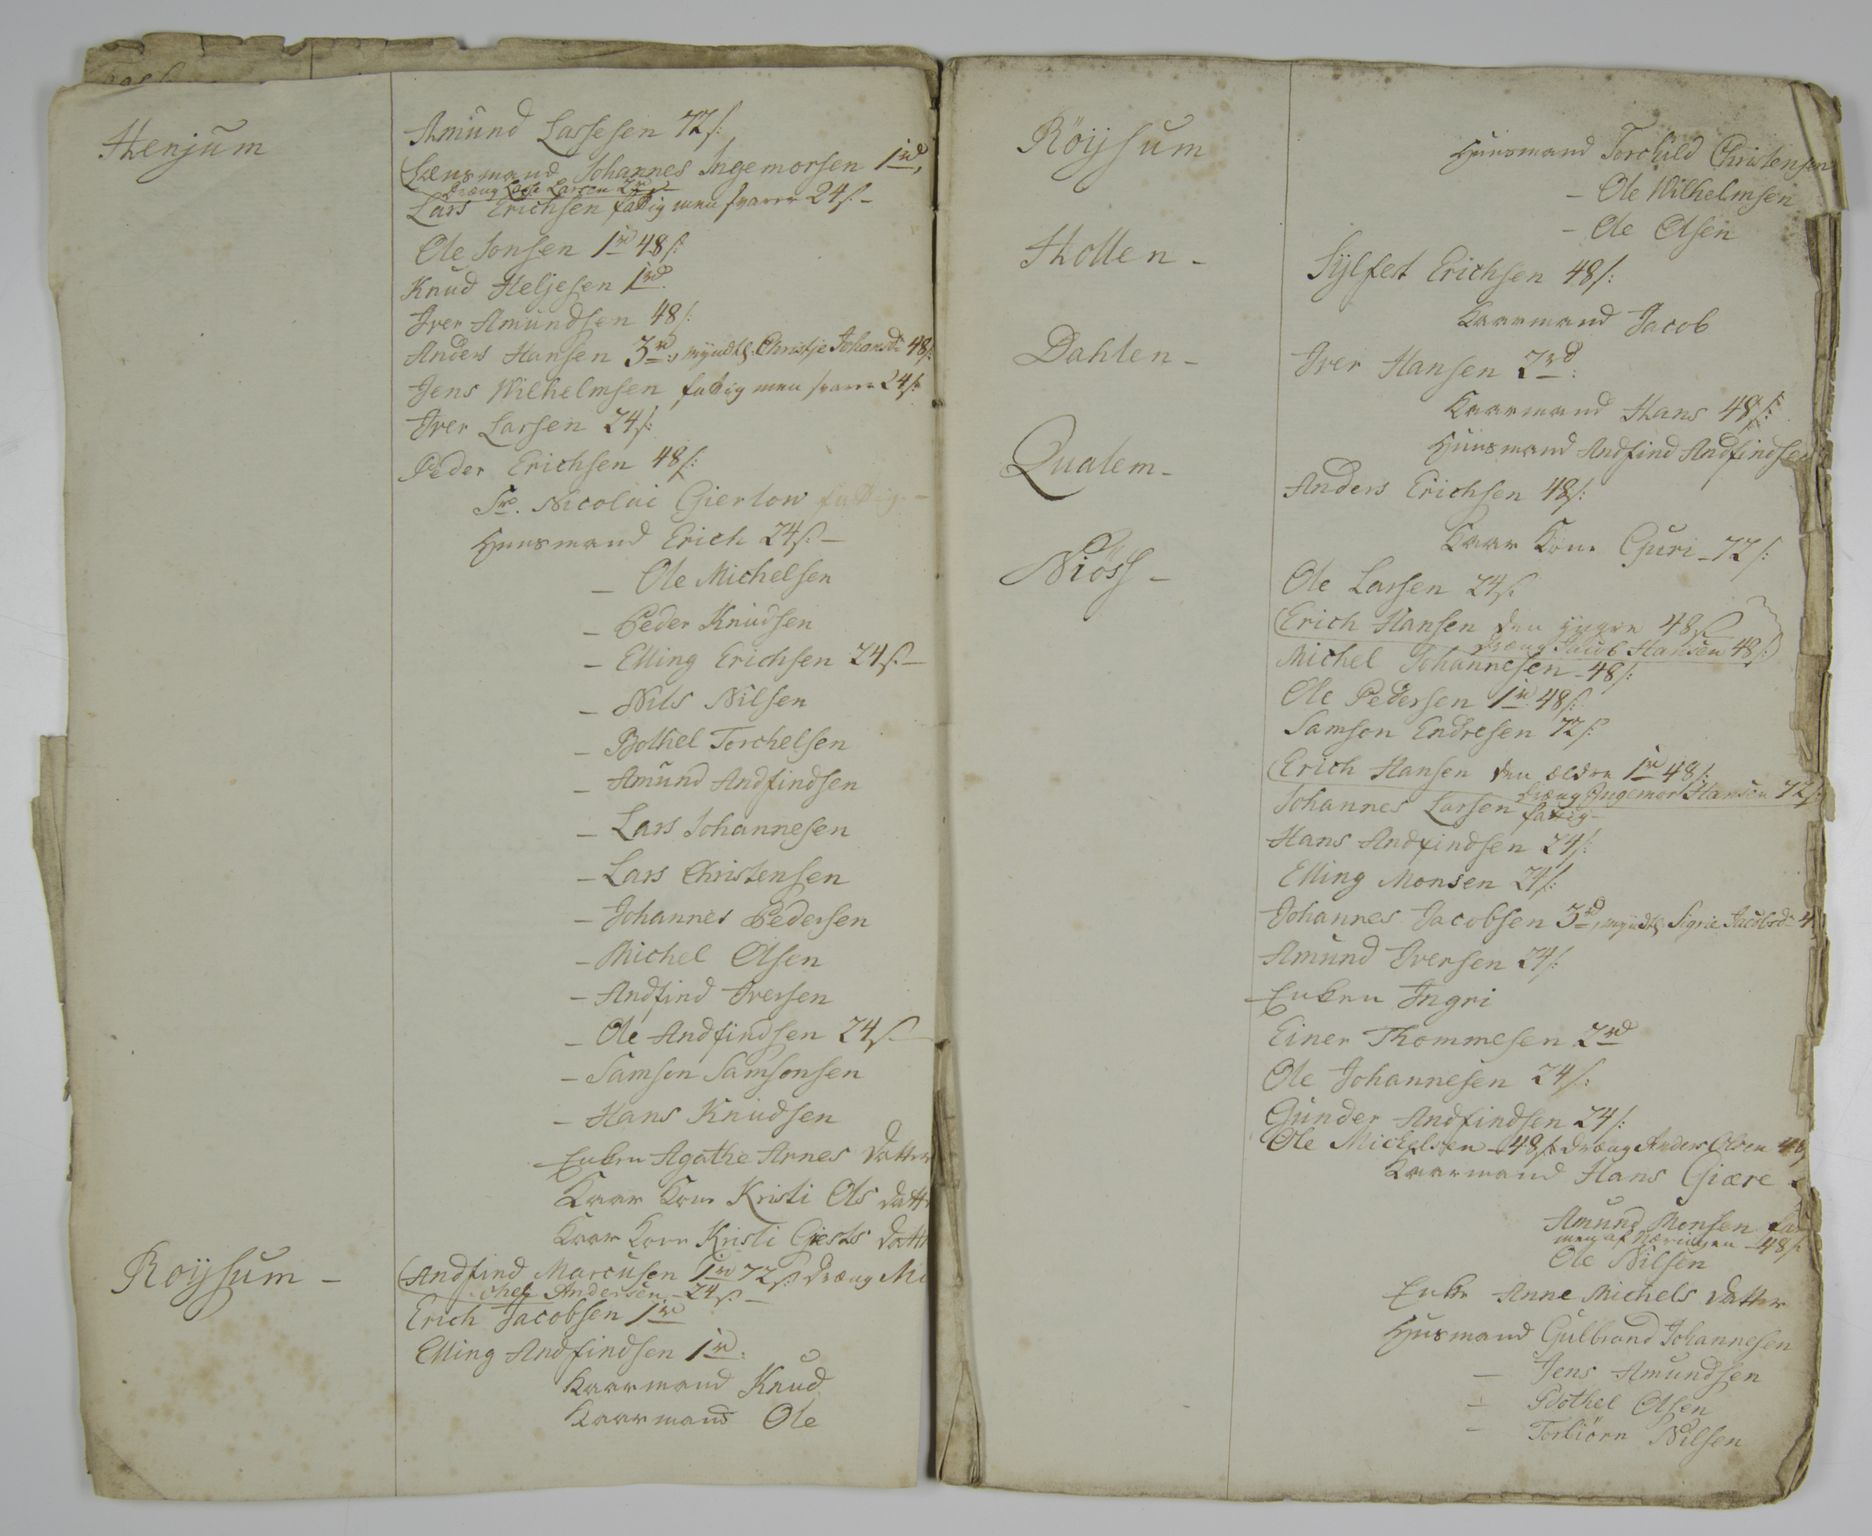 Henjum
Amund Lassesen 72 s:
Lensmand Johannes Ingemorsen 1 rd,
dræng Lasse Larsen
Lars Erichsen fattig men svarer 24 s. –
Ole Jonsen 1 rd 48 s:
Knud Heljesen 1 rd.
Iver Amundsen 48 s:
Anders Hansen 3 rd., myndtl. Christje Johansd: 48 s:
Jens Wilhelmsen fattig men svarer 24 s:
Iver Larsen 24 s:
Peder Erichsen 48 s:
Sr. Nicolai Giertow fattig. –
Huusmand Erich 24 s: –
– Ole Michelsen
– Peder Knudsen
– Elling Erichsen 24 s. –
– Nils Nilsen
– Bothel Torchelsen
– Amund Andfindsen
– Lars Johannesen
– Lars Christensen
– Johannes Pedersen
– Michel Olsen
– Andfind Iversen
– Ole Andfindsen 24 s. –
– Samson Samsonsen
– Hans Knudsen
Enken Agathe Arnes datter
Kaar Kone Kristi Ols datt
Kaar Kone Kristi Giests datt
Röysum –
Andfind Marcusen 1 rd 72 s: dræng Mi
chel Andersen – 24 s. –
Erich Jacobsen 1 rd
Elling Andfindsen 1 rd.
Kaarmand Knud
Kaarmand Ole
Röysum
Huusmand Torchild Christensen
– Ole Wilhelmsen
– Ole Olsen
Hollen –
Sylfest Erichsen 48 s:
Kaarmand Jacob
Dahlen –
Iver Hansen 2 rd:
Kaarmand Hans 48 s:
Huusmand Andfind Andfindsen
Qualem –
Anders Erichsen 48 s:
Kaar Kone Guri – 72 s:
Niöss –
Ole Larsen 24 s.
Erich Hansen den yngre 48 s
dræng Jacob Hansen 48 s:
Michel Johannesen – 48 s:
Ole Pedersen 1 rd 48 s:
Samson Endresen 72 s:
Erich Hansen den ældre 1 rd 48 s:
dræng Ingemor Hansen 72 s:
Johannes Larsen fattig –
Hans Andfindsen 24 s:
Elling Monsen 24 s:
Johannes Jacobsen 3 rd, myndtl. Sigrie Jacobsd: 4
Amund Iversen 24 s:
Enken Ingri
Einer Thommesen 2 rd
Ole Johannesen 24 s:
Gunder Andfindsen 24 s:
Ole Michelsen – 48 s: dræng Anders Olsen 48
Kaarmand Hans Giære
Amund Monsen
men af Næringen – 48 s:
Ole Nilsen
Enke Anne Michels datter
Husmand Gulbrand Johannesen
– Jens Amundsen
– Bothel Olsen
– Torbiörn Nilsen